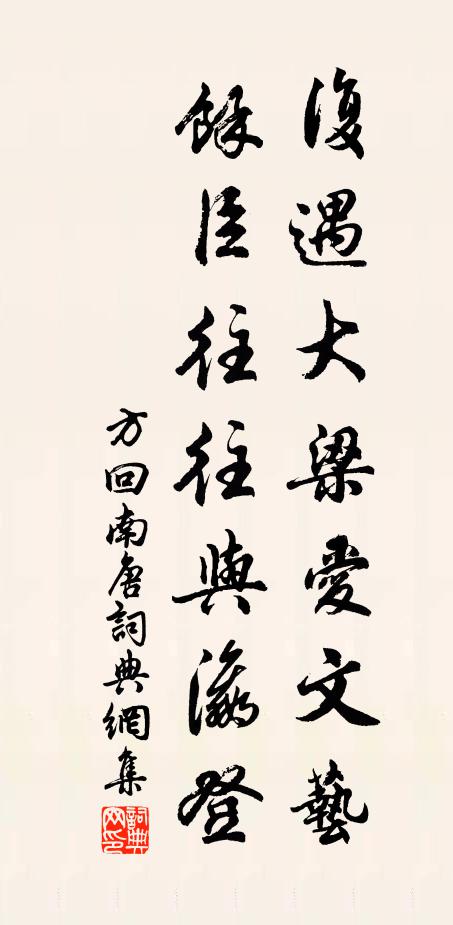 復遇大梁愛文藝
餘臣往往與瀛登
方回南唐詞典網集
詞典網印